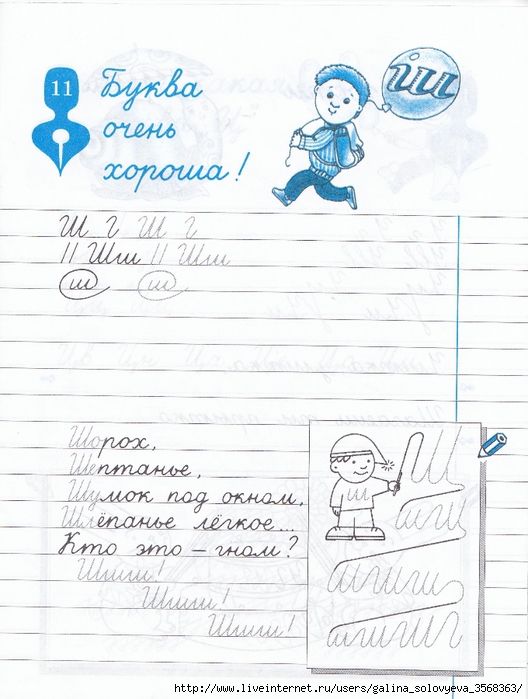 11
Буква
очень
хороша!
ш
Ш Г Ш Г
// Шш // Шш
ш ш
Шорох,
Шептанье,
Шумок под окном,
Шлёпанье лёгкое...
Кто это – гном?
Шшш!
Шшш!
Шшш!
ш
http://www.liveinternet.ru/users/galina_solovyeva_3568363/